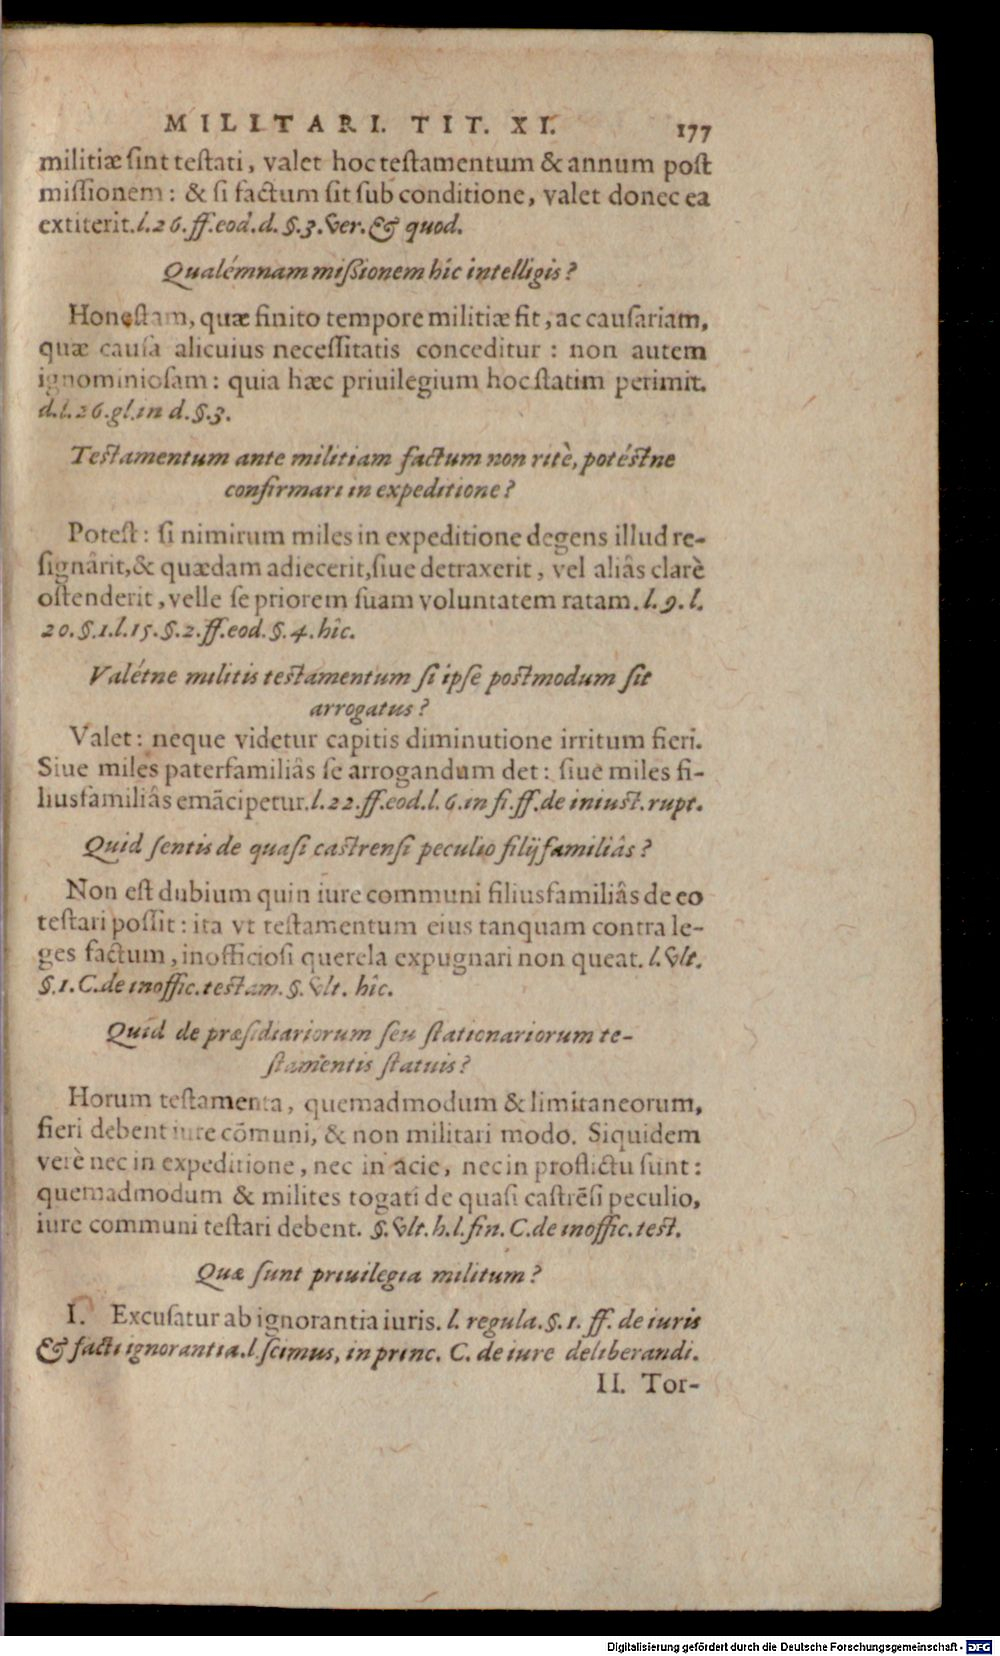 MILITARI. TIT. XI. 177
militiæ ſint teſtati, valet hoc teſtamentum & annum poſt
miſſionem: & ſi factum ſit ſub conditione, valet donec ea
extiterit. l. 26. ff. eod. d. §. 3. ver. & quod.
Qualémnam miſsionem hîc intelligis?
Honeſtam, quæ finito tempore militiæ fit, ac cauſariam,
quæ cauſa alicuius neceſſitatis conceditur: non autem
ignominioſam: quia hæc priuilegium hoc ſtatim perimit.
d. l. 26. gl. in d. §. 3.
Teſtamentum ante militiam factum non ritè, potéſtne
confirmari in expeditione?
Poteſt: ſi nimirum miles in expeditione degens illud re-
ſignârit, & quædam adiecerit, ſiue detraxerit, vel aliâs clarè
oſtenderit, velle ſe priorem ſuam voluntatem ratam. l. 9. l.
20. §. 1. l. 15. §. 2. ff. eod. §. 4. hîc.
Valétne militis teſtamentum ſi ipſe poſtmodum ſit
arrogatus?
Valet: neque videtur capitis diminutione irritum fieri.
Siue miles paterfamiliâs ſe arrogandum det: ſiue miles fi-
liusfamiliâs emãcipetur. l. 22. ff. eod. l. 6. in fi. ff. de iniuſt. rupt.
Quid ſentis de quaſi caſtrenſi peculio filijfamiliâs?
Non eſt dubium quin iure communi filiusfamiliâs de eo
teſtari poſſit: ita vt teſtamentum eius tanquam contra le-
ges factum, inofficioſi querela expugnari non queat. l. vlt.
§. 1. C. de inoffic. teſtam. §. vlt. hîc.
Quid de præſidiariorum ſeu ſtationariorum te-
ſtamentis ſtatuis?
Horum teſtamenta, quemadmodum & limitaneorum,
fieri debent iure cõmuni, & non militari modo. Siquidem
verè nec in expeditione, nec in acie, nec in proflictu ſunt:
quemadmodum & milites togati de quaſi caſtrẽſi peculio,
iure communi teſtari debent. §. vlt. h. l. fin. C. de inoffic. teſt.
Quæ ſunt priuilegia militum?
I. Excuſatur ab ignorantia iuris. l. regula. §. 1. ff. de iuris
& facti ignorantia. l. ſcimus, in princ. C. de iure deliberandi.
II. Tor-
Digitalisierung gefördert durch die Deutsche Forschungsgemeinschaft - DFG